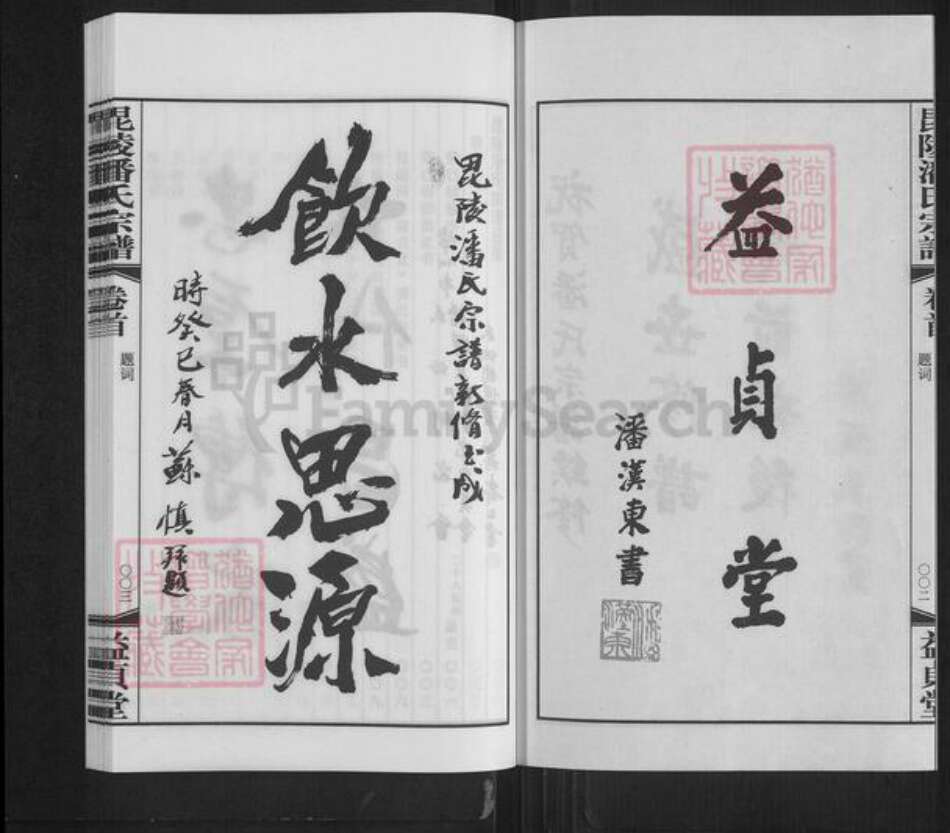 益貞堂
潘漢東書
毘陵潘氏宗譜
卷首
题词
〇〇二
益貞堂
毘陵潘氏宗譜新脩告成
飲水思源
時癸巳春月蘇慎拜題
毘陵潘氏宗譜
卷首
题词
〇〇三
益貞堂
FamilySearch